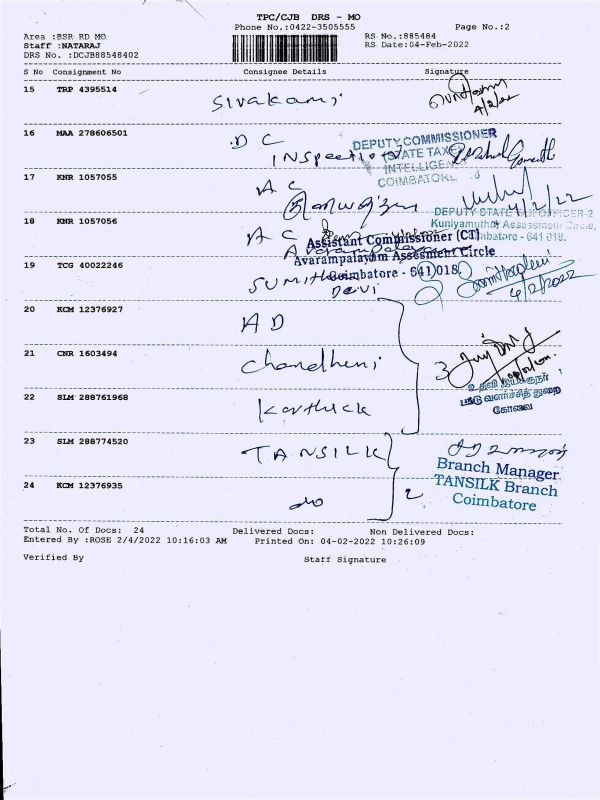 TPC/CJB DRS - MO
Phone No.:0422-3505555
Page No.:2
Area :BSR RD MO
RS No.:885484
Staff :NATARAJ
RS Date:04-Feb-2022
DRS No. :DCJB88548402
S No Consignment No Consignee Details Signature
15 TRP 4395514 Sivakami
4/2/22
16 MAA 278606501 D C
INSpection
DEPUTY COMMISSIONER
(STATE TAXES)
INTELLIGENCE
COIMBATORE
17 KNR 1057055 A C
4/2/22
DEPUTY STATE TAX OFFICER-2
Kuniyamuthur Assessment Circle,
Coimbatore - 641 018.
18 KNR 1057056 A C
Avarampalayam
Assistant Commissioner (CT)
Avarampalayam Assesment Circle
Coimbatore - 641 018.
19 TCG 40022246 SUMITHra
Devi
4/2/2022
20 KCM 12376927 A D
21 CNR 1603494 Chandheni
3
உதவி இயக்குநர்
பட்டு வளர்ச்சித் துறை
கோவை
22 SLM 288761968 Karthick
23 SLM 288774520 TANSILK
Branch Manager
TANSILK Branch
Coimbatore
24 KCM 12376935 do
2
Total No. Of Docs: 24 Delivered Docs: Non Delivered Docs:
Entered By :ROSE 2/4/2022 10:16:03 AM Printed On: 04-02-2022 10:26:09
Verified By Staff Signature